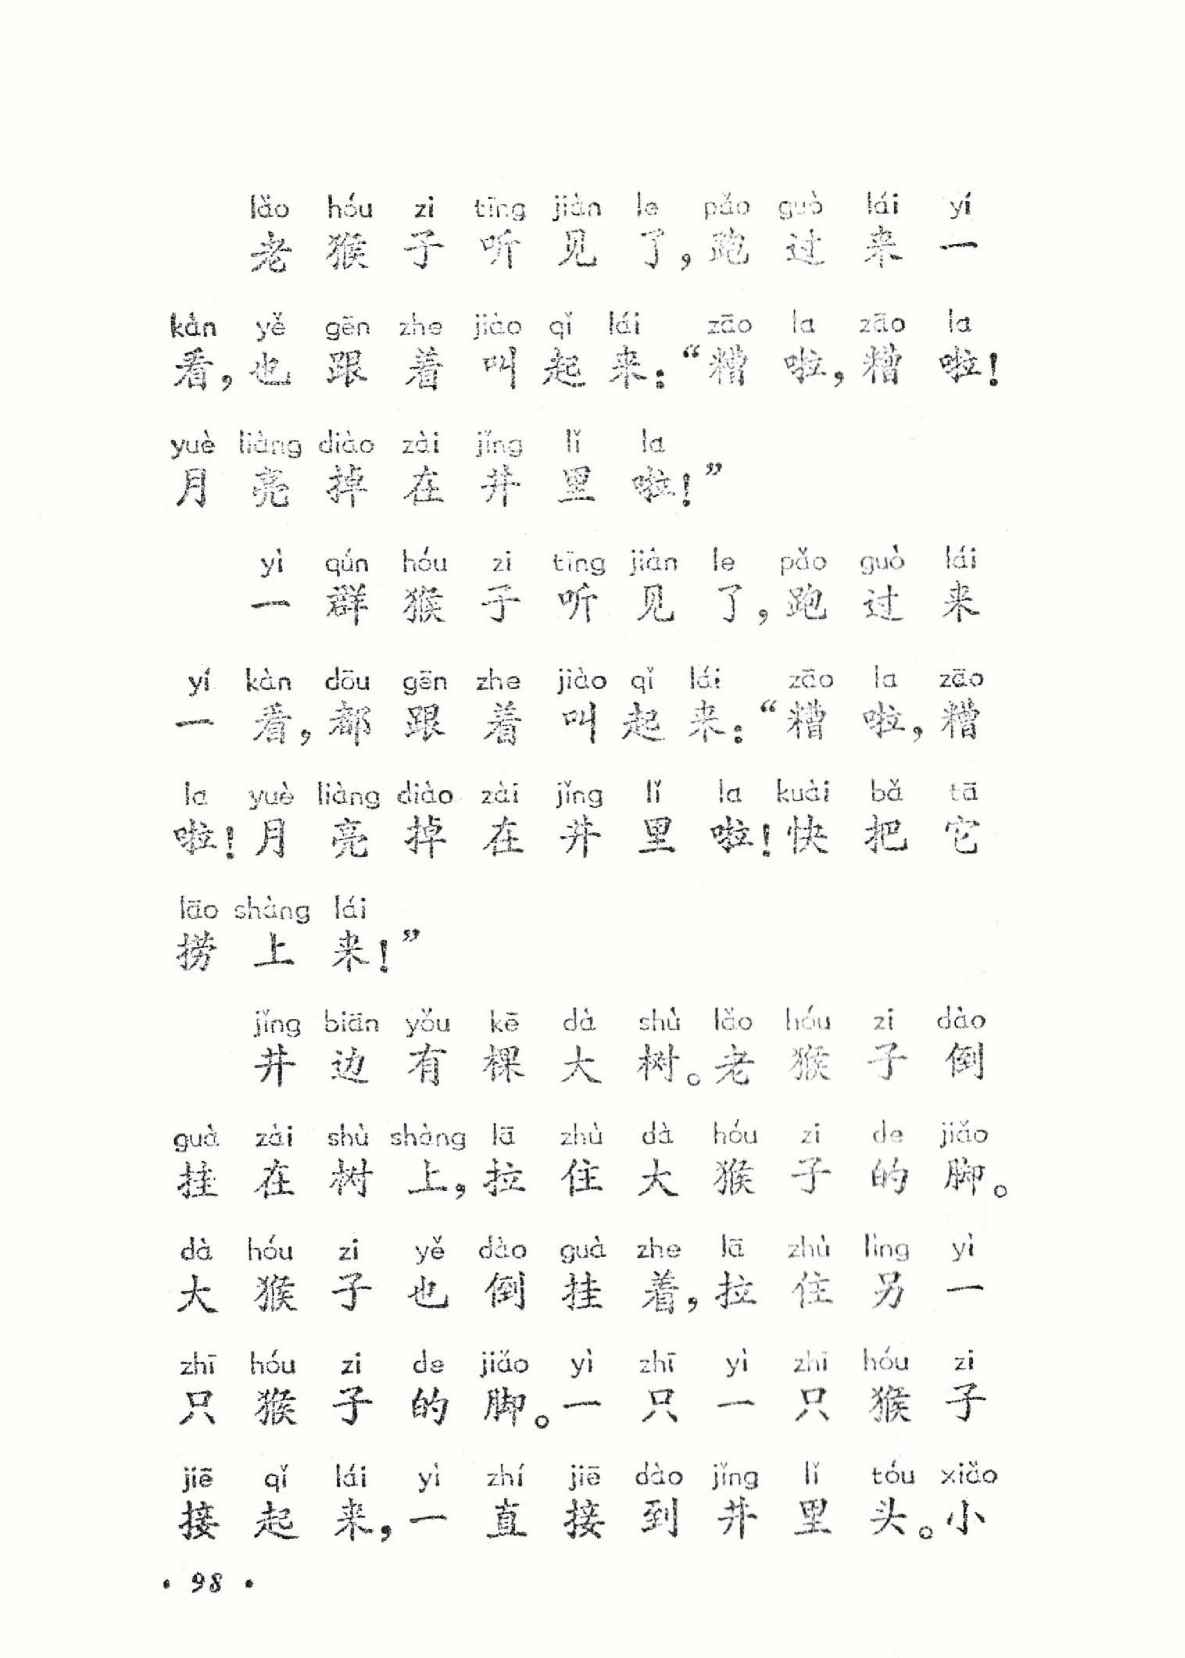 lǎo hóu zi tīng jiàn le pǎo guò lái yí
老猴子听见了，跑过来一
kàn yě gēn zhe jiào qǐ lái zāo la zāo la
看，也跟着叫起来：“糟啦，糟啦！
yuè liàng diào zài jǐng lǐ la
月亮掉在井里啦！”
yì qún hóu zi tīng jiàn le pǎo guò lái
一群猴子听见了，跑过来
yí kàn dōu gēn zhe jiào qǐ lái zāo la zāo
一看，都跟着叫起来：“糟啦，糟
la yuè liàng diào zài jǐng lǐ la kuài bǎ tā
啦！月亮掉在井里啦！快把它
lāo shàng lái
捞上来！”
jǐng biān yǒu kē dà shù lǎo hóu zi dào
井边有棵大树。老猴子倒
guà zài shù shàng lā zhù dà hóu zi de jiǎo
挂在树上，拉住大猴子的脚。
dà hóu zi yě dào guà zhe lā zhù lìng yì
大猴子也倒挂着，拉住另一
zhī hóu zi de jiǎo yì zhī yì zhī hóu zi
只猴子的脚。一只一只猴子
jiē qǐ lái yì zhí jiē dào jǐng lǐ tóu xiǎo
接起来，一直接到井里头。小
• 98 •